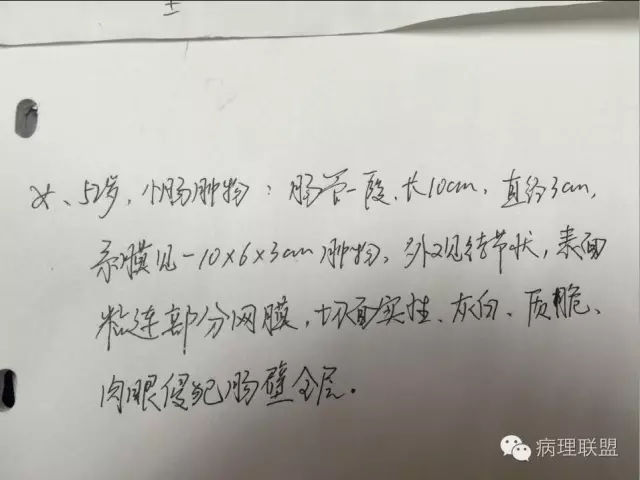 ±
女、52岁，小肠肿物：肠管一段、长10cm，直径3cm，
系膜见一10×6×3cm肿物，外观结节状，表面
粘连部分网膜，切面实性、灰白、质脆、
肉眼侵犯肠壁全层。
病理联盟